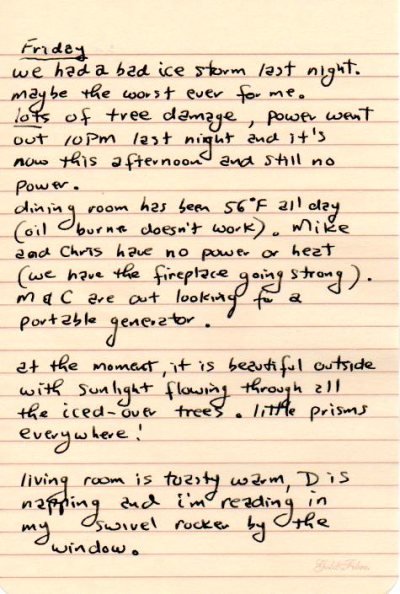 Friday
we had a bad ice storm last night.
maybe the worst ever for me.
lots of tree damage, power went
out 10PM last night and it's
now this afternoon and still no
power.
dining room has been 56°F all day
(oil burner doesn't work). Mike
and Chris have no power or heat
(we have the fireplace going strong).
M & C are out looking for a
portable generator.
at the moment, it is beautiful outside
with sunlight flowing through all
the iced-over trees. little prisms
everywhere!
living room is toasty warm, D is
napping and i'm reading in
my swivel rocker by the
window.
Gold Fibre